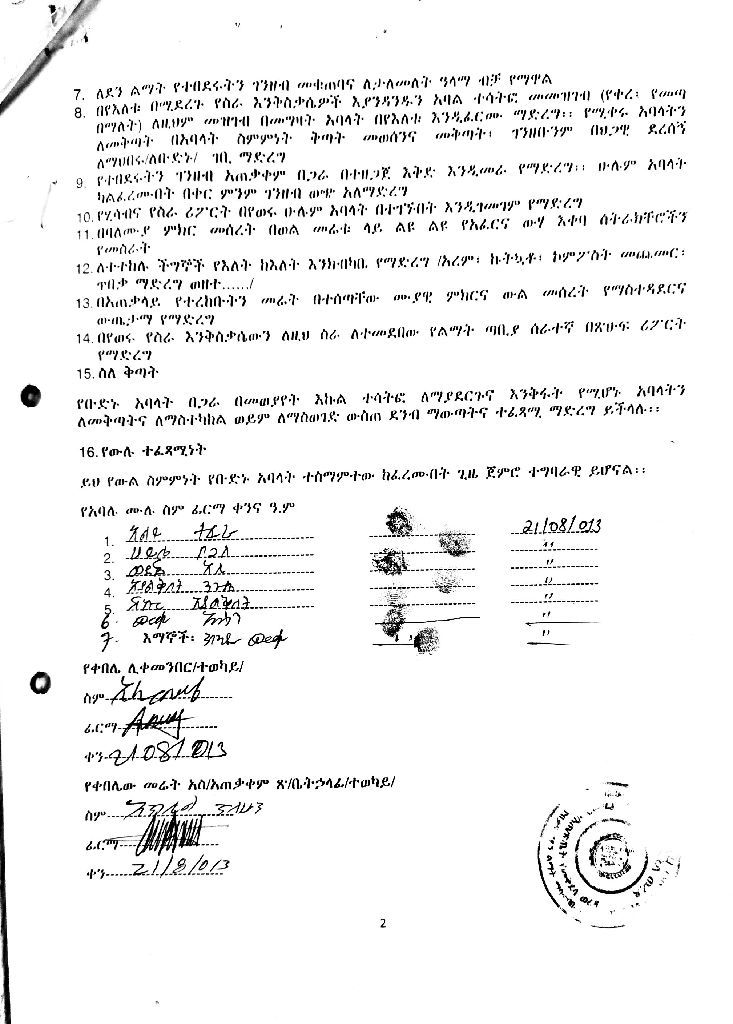 7. ለደን ልማት የተበደሩትን ገንዘብ መቆጠባና ለታለመለት ዓላማ ብቻ የማዋል
8. በየእለቱ በሚደረጉ የስራ እንቅስቃሴዎች እያንዳንዱን አባል ተሳትፎ መመዝገብ (የቀረ፣ የመጣ
በማለት) ለዚህም መዝገብ በመግዛት አባላት በየእለቱ እንዲፈርሙ ማድረግ፡፡ የሚቀሩ አባላትን
ለመቅጣት በአባላት ስምምነት ቅጣት መወሰንና መቅጣት፣ ገንዘቡንም በህጋዊ ደረሰኝ
ለማህበሩ/ለቡድኑ/ ገቢ ማድረግ
9. የተበደሩትን ገንዘብ አጠቃቀም በጋራ በተዘጋጀ እቅድ እንዲመራ የማድረግ፡፡ ሁሉም አባላት
ካልፈረሙበት በቀር ምንም ገንዘብ ወጭ አለማድረግ
10. የሂሳብና የስራ ሪፖርት በየወሩ ሁሉም አባላት በተገኙበት እንዲገመገም የማድረግ
11. በባለሙያ ምክር መሰረት በወል መሬቱ ላይ ልዩ ልዩ የአፈርና ውሃ እቀባ ስትራክቸሮችን
የመስራት
12. ለተተከሉ ችግኞች የእለት ከእለት እንክብካቤ የማድረግ /አረም፣ ኩትኳቶ፣ ኮምፖስት መጨመር፣
ጥበቃ ማድረግ ወዘተ....../
13. በአጠቃላይ የተረከቡትን መሬት በተሰጣቸው ሙያዊ ምክርና ውል መሰረት የማስተዳደርና
ውጤታማ የማድረግ
14. በየወሩ የስራ እንቅስቃሴውን ለዚህ ስራ ለተመደበው የልማት ጣቢያ ሰራተኛ በጽሁፍ ሪፖርት
የማድረግ
15. ስለ ቅጣት
የቡድኑ አባላት በጋራ በመወያየት እኩል ተሳትፎ ለማያደርጉና እንቅፋት የሚሆኑ አባላትን
ለመቅጣትና ለማስተካከል ወይም ለማስወገድ ውስጠ ደንብ ማውጣትና ተፈጻሚ ማድረግ ይችላሉ፡፡
16. የውሉ ተፈጻሚነት
ይህ የውል ስምምነት የቡድኑ አባላት ተስማምተው ከፈረሙበት ጊዜ ጀምሮ ተግባራዊ ይሆናል፡፡
የአባሉ ሙሉ ስም ፊርማ ቀንና ዓ.ም
1. 21/08/013
2. "
3. "
4. "
5. "
6. "
7. እማኞች፡ "
የቀበሌ ሊቀመንበር/ተወካይ/
ስም
ፊርማ
ቀን 21/08/013
የቀበሌው መሬት አስ/አጠቃቀም ጽ/ቤትኃላፊ/ተወካይ/
ስም
ፊርማ
ቀን 21/8/013
2